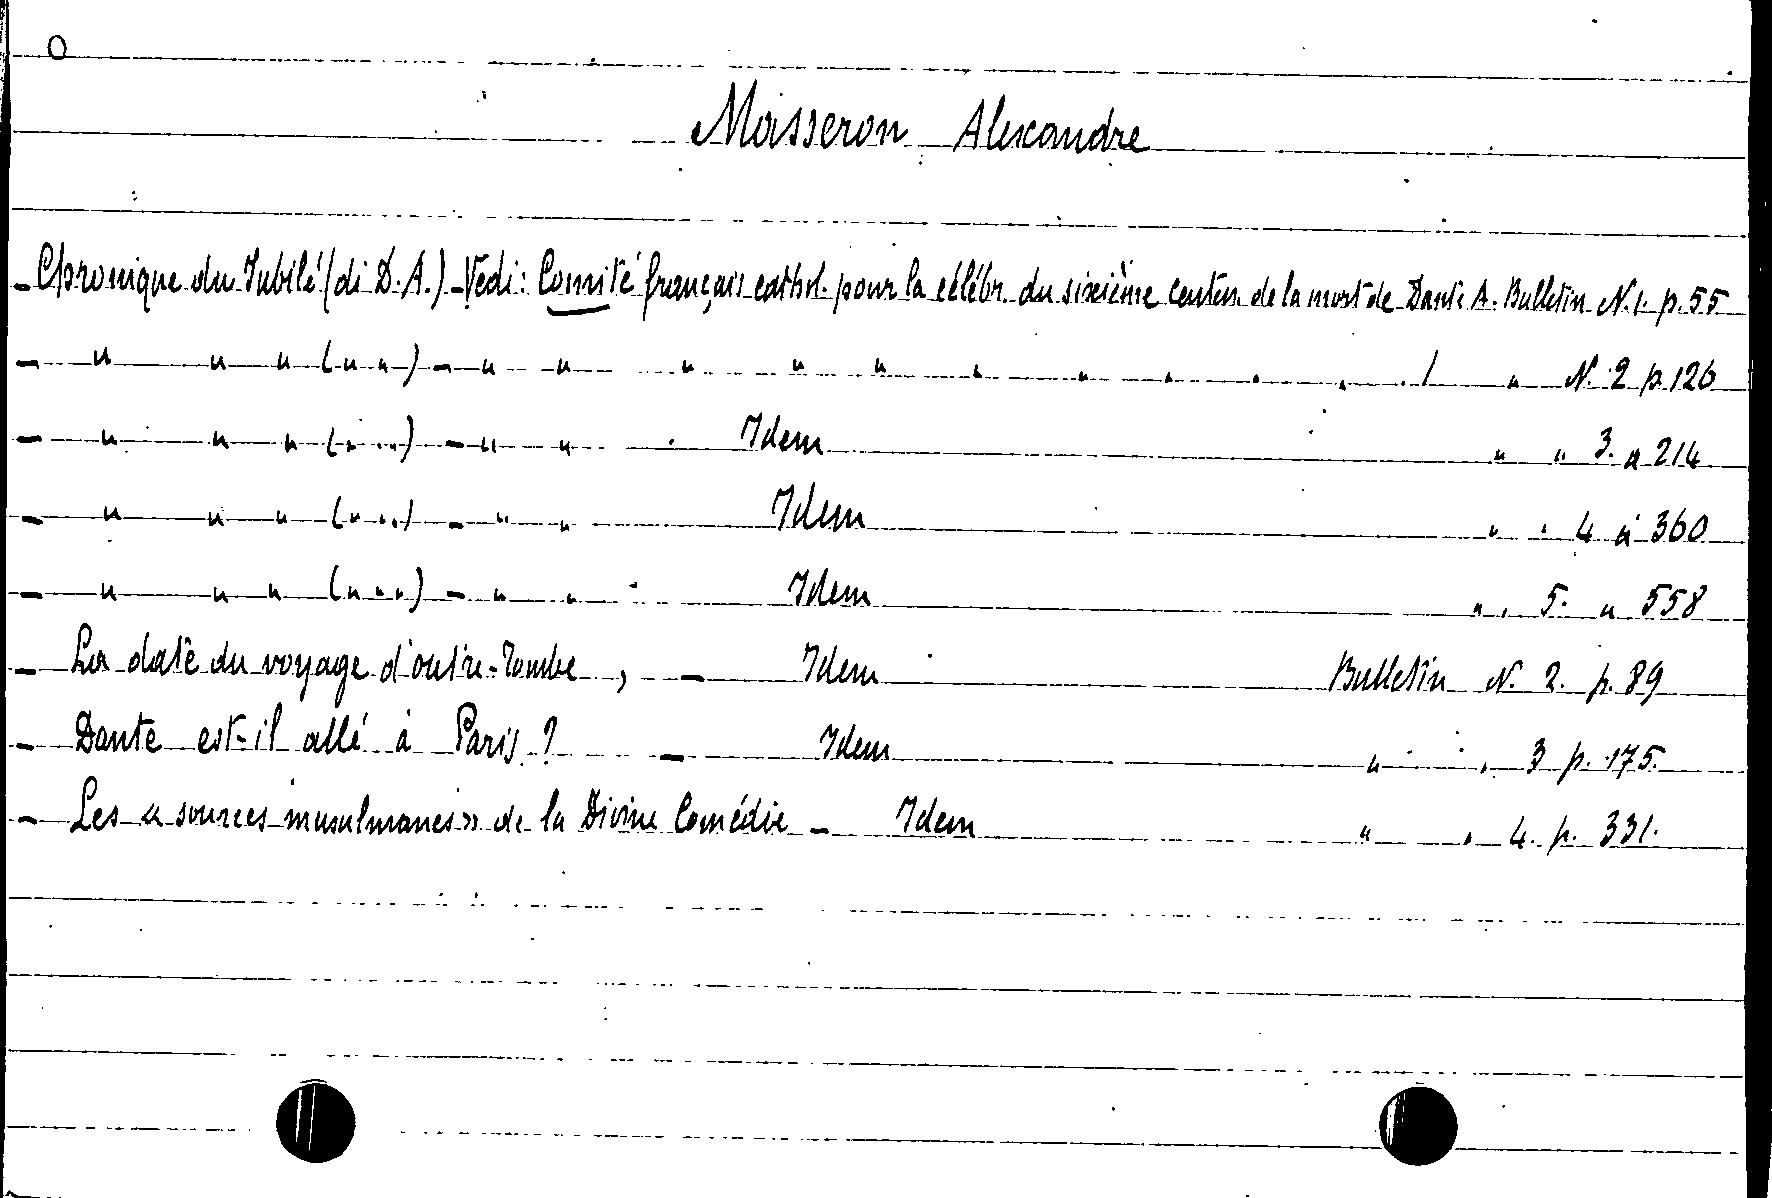 Masseron Alexandre
- Chronique du Jubilé (di D. A.) - Vedi: Comité français cathol. pour la célébr. du sixième centen. de la mort de Dante A. Bulletin N. 1. p. 55
- " " " (" ") - " " " " " " " " " " " " N. 2 p. 126
- " " " (" ") - " " Idem " " 3. " 214
- " " " (" ") - " " Idem " " 4 " 360
- " " " (" ") - " " Idem " " 5. " 558
- La date du voyage d'outre-tombe, - Idem Bulletin N. 2. p. 89
- Dante est-il allé à Paris? - Idem " " 3 p. 175.
- Les «sources musulmanes» de la Divine Comédie - Idem " " 4. p. 331.